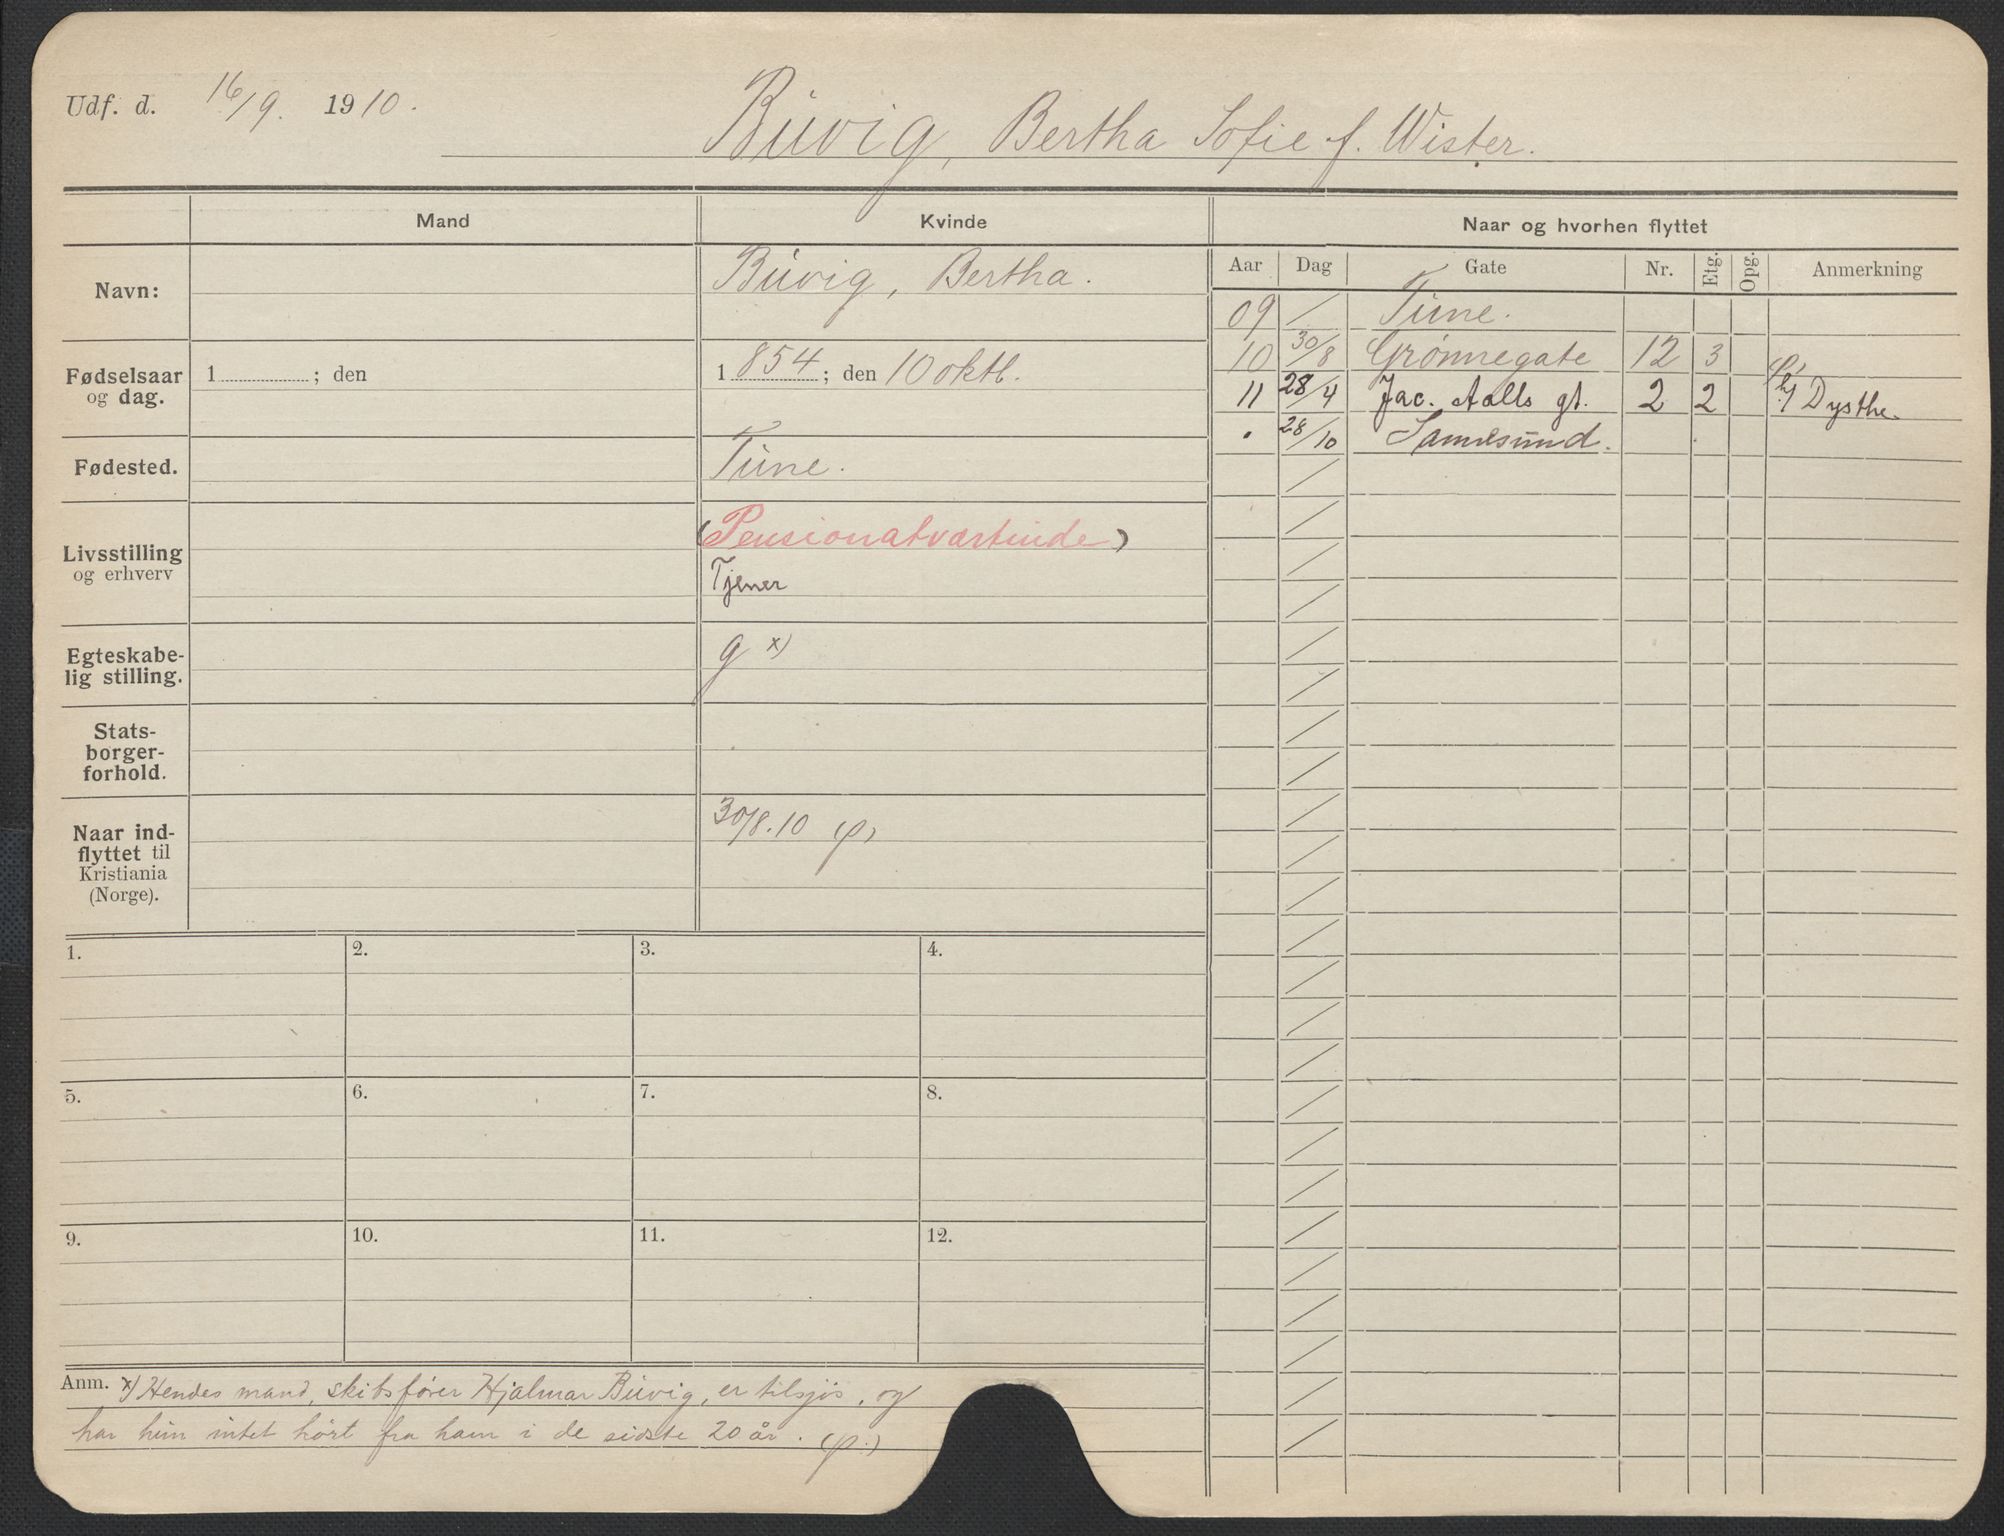 Udf. d. 16/9. 1910.
Buvig, Bertha Sofie f. Wister.
Mand
Kvinde
Naar og hvorhen flyttet
Navn:
Buvig, Bertha.
Aar Dag Gate Nr. Etg. Opg. Anmerkning
09 / Tune.
10 30/8 Grønnegate 12 3 (p)
11 28/4 Jac. Aalls gt. 2 2 h/ Dysthe.
" 28/10 Sannesund.
Fødselsaar
og dag.
1 ; den
1854 ; den 10 oktb.
Fødested.
Tune.
Livsstilling
og erhverv
(Pensionatværtinde)
Tjener
Egteskabe-
lig stilling.
g x)
Stats-
borger-
forhold.
Naar ind-
flyttet til
Kristiania
(Norge).
30/8.10 (p)
1. 2. 3. 4.
5. 6. 7. 8.
9. 10. 11. 12.
Anm. x) Hendes mand, skibsfører Hjalmar Buvig, er tilsjøs, og
har hun intet hørt fra ham i de sidste 20 år. (p.)